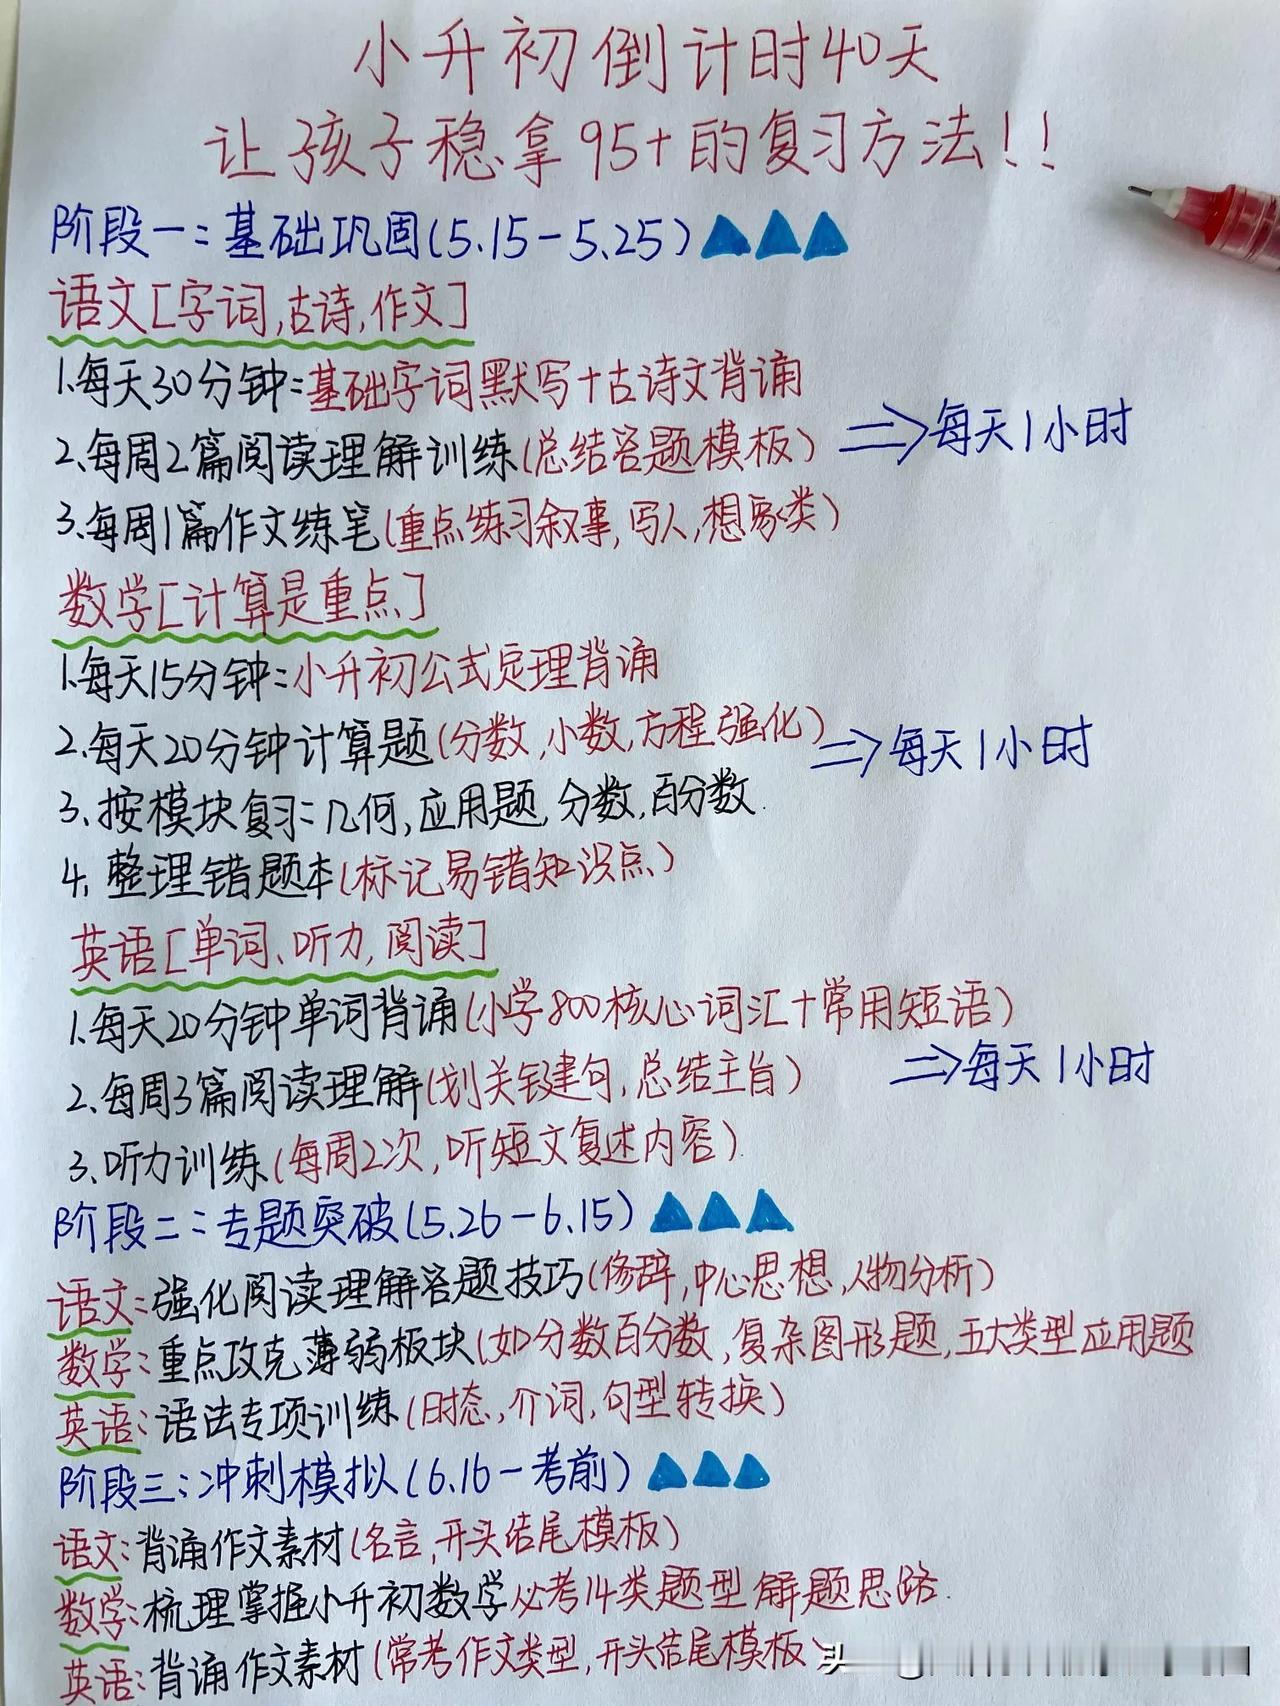 小升初倒计时40天
让孩子稳拿95+的复习方法!!
阶段一:基础巩固(5.15-5.25)
语文[字词,古诗,作文]
1.每天30分钟:基础字词默写+古诗文背诵
2.每周2篇阅读理解训练(总结答题模板) ⇒每天1小时
3.每周1篇作文练笔(重点练习叙事,写人,想象类)
数学[计算是重点]
1.每天15分钟:小升初公式定理背诵
2.每天20分钟计算题(分数,小数,方程强化) ⇒每天1小时
3.按模块复习:几何,应用题,分数,百分数.
4.整理错题本(标记易错知识点)
英语[单词、听力,阅读]
1.每天20分钟单词背诵(小学800核心词汇+常用短语)
2.每周3篇阅读理解(划关键句,总结主旨) ⇒每天1小时
3.听力训练(每周2次,听短文复述内容).
阶段二:专题突破(5.26-6.15)
语文:强化阅读理解答题技巧(修辞,中心思想,人物分析)
数学:重点攻克薄弱板块(如分数百分数,复杂图形题,五大类型应用题
英语:语法专项训练(时态,介词,句型转换)
阶段三:冲刺模拟(6.16-考前)
语文:背诵作文素材(名言,开头结尾模板)
数学:梳理掌握小升初数学必考14类题型解题思路.
英语:背诵作文素材(常考作文类型,开头结尾模板)
头